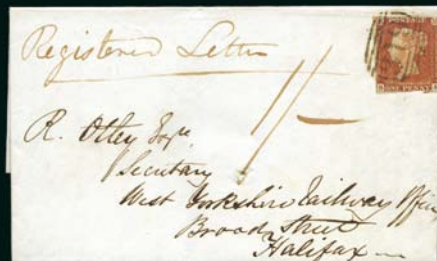 Registered Letter
1/-
R. Ottey Esqre
Secretary
West Yorkshire Railway Office
Broad Street
Halifax
POSTAGE
ONE PENNY